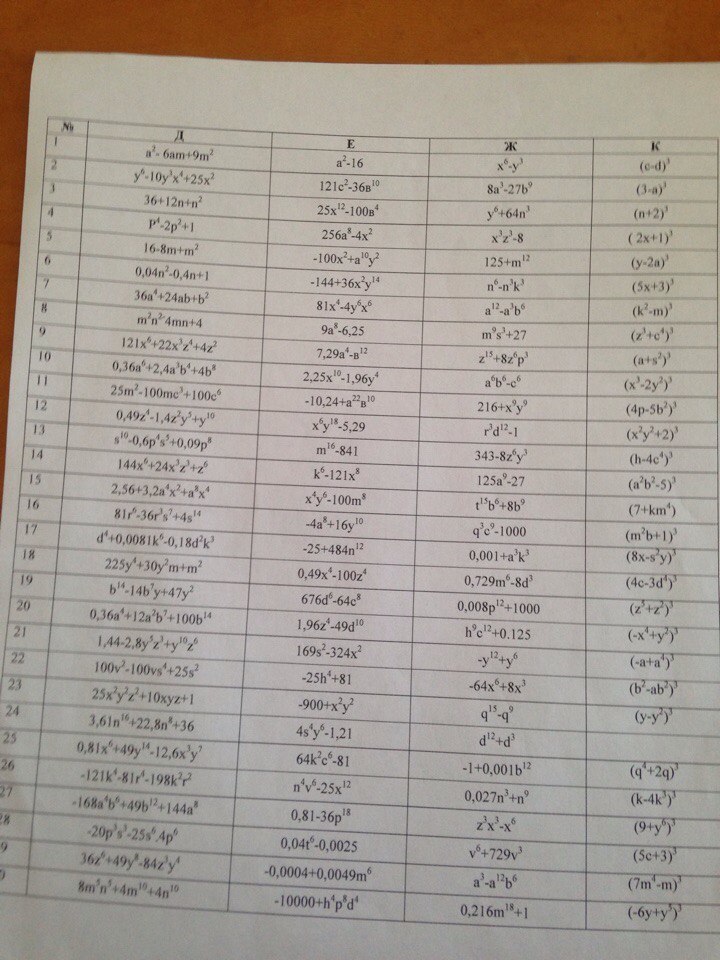 № Д Е Ж К
1 a²- 6am+9m² a²-16 x⁶-y³ (c-d)³
2 y⁶-10y³x⁴+25x² 121c²-36в¹⁰ 8a³-27b⁹ (3-a)³
3 36+12n+n² 25x¹²-100в⁴ y⁶+64n³ (n+2)³
4 P⁴-2p²+1 256a⁸-4x² x³z³-8 ( 2x+1)³
5 16-8m+m² -100x²+a¹⁰y² 125+m¹² (y-2a)³
6 0,04n²-0,4n+1 -144+36x²y¹⁴ n⁶-n³k³ (5x+3)³
7 36a⁴+24ab+b² 81x⁴-4y⁶x⁶ a¹²-a³b⁶ (k²-m)³
8 m²n²⁻4mn+4 9a⁸-6,25 m⁹s³+27 (z³+c⁴)³
9 121x⁶+22x³z⁴+4z² 7,29a⁴-в¹² z¹⁵+8z⁶p³ (a+s²)³
10 0,36a⁶+2,4a³b⁴+4b⁸ 2,25x¹⁰-1,96y⁴ a⁶b⁶-c⁶ (x³-2y²)³
11 25m²-100mc³+100c⁶ -10,24+a²²в¹⁰ 216+x⁹y⁹ (4p-5b²)³
12 0,49z⁴-1,4z²y⁵+y¹⁰ x⁶y¹⁸-5,29 r³d¹²-1 (x²y²+2)³
13 s¹⁰-0,6p⁴s⁵+0,09p⁸ m¹⁶-841 343-8z⁶y³ (h-4c⁴)³
14 144x⁶+24x³z³+z⁶ k⁶-121x⁸ 125a⁹-27 (a²b²-5)³
15 2,56+3,2a⁴x²+a⁸x⁴ x⁴y⁶-100m⁸ t¹⁵b⁶+8b⁹ (7+km⁴)
16 81r⁶-36r³s⁷+4s¹⁴ -4a⁸+16y¹⁰ q³c⁹-1000 (m²b+1)³
17 d⁴+0,0081k⁶-0,18d²k³ -25+484n¹² 0,001+a³k³ (8x-s²y)³
18 225y⁴+30y²m+m² 0,49x⁴-100z⁴ 0,729m⁶-8d³ (4c-3d⁴)³
19 b¹⁴-14b⁷y+47y² 676d⁶-64c⁸ 0,008p¹²+1000 (z⁵+z²)³
20 0,36a⁴+12a²b⁷+100b¹⁴ 1,96z⁴-49d¹⁰ h⁹c¹²+0.125 (-x⁴+y²)³
21 1,44-2,8y⁵z³+y¹⁰z⁶ 169s²-324x² -y¹²+y⁶ (-a+a⁴)³
22 100v²-100vs⁴+25s² -25h⁴+81 -64x⁶+8x³ (b²-ab²)³
23 25x²y²z²+10xyz+1 -900+x²y² q¹⁵-q⁹ (y-y²)³
24 3,61n¹⁶+22,8n⁸+36 4s⁴y⁶-1,21 d¹²+d³
25 0,81x⁶+49y¹⁴-12,6x³y⁷ 64k²c⁶-81 -1+0,001b¹² (q⁴+2q)³
26 -121k⁴-81r⁴-198k²r² n⁴v⁶-25x¹² 0,027n³+n⁹ (k-4k³)³
27 -168a⁴b⁶+49b¹²+144a⁸ 0,81-36p¹⁸ z³x³-x⁶ (9+y⁶)³
28 -20p³s³-25s⁶.4p⁶ 0,04t⁶-0,0025 v⁶+729v³ (5c+3)³
9 36z⁶+49y⁸-84z³y⁴ -0,0004+0,0049m⁶ a³-a¹²b⁶ (7m⁴-m)³
0 8m⁵n⁵+4m¹⁰+4n¹⁰ -10000+h⁴p⁸d⁴ 0,216m¹⁸+1 (-6y+y⁵)³